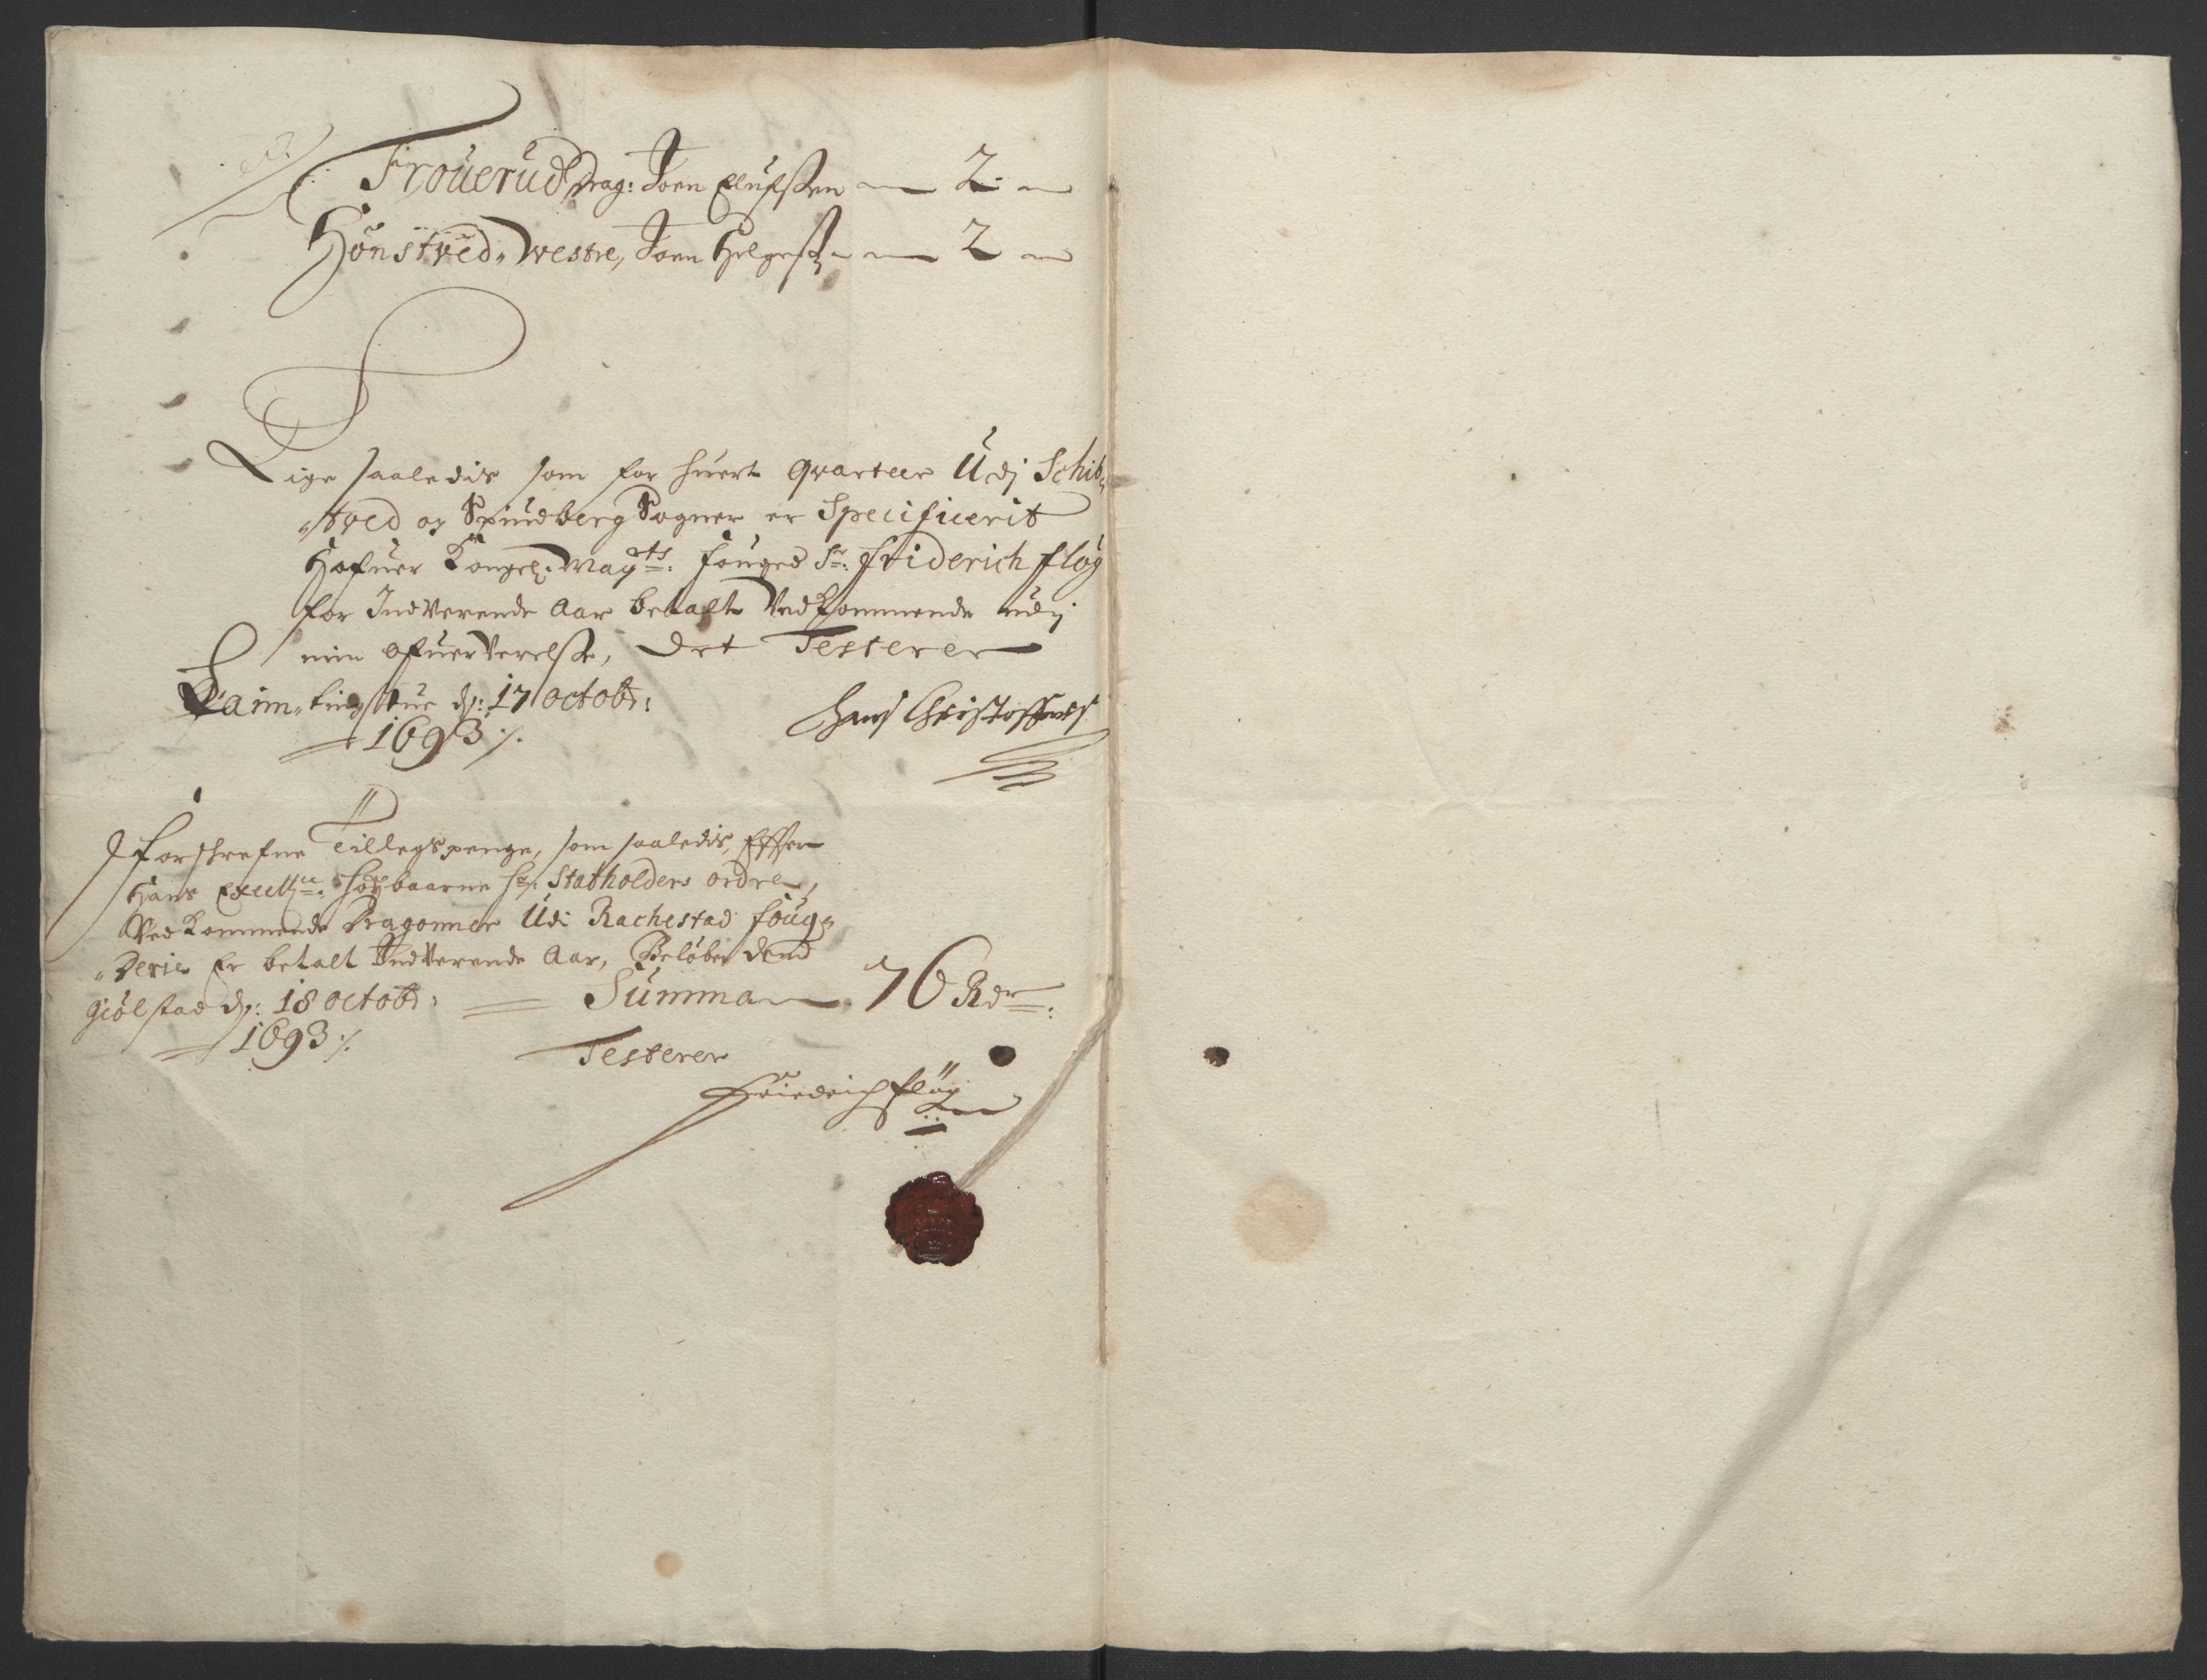 Trouerud Drag: Joen Elufßen — 2 —
Hönstved, Westre, Joen Helgeß: — 2 —
Lige saaledis som for huert qvarteer Udj Schib,,
,,tved og Spiudberg Sogner er Specificerit
Hafuer Kongel: May:ts: fouged Sr: Friderich fløg
for Indverende Aar betalt Vedkommende udj
min ofuerverelße, Det Testerer
Haim,, tingstue dj: 17 octobr:
1693 ./.
Hans Christoffers
forschrefne Tillegspenge, som saaledis, Effter
Hans Excell:ce: Höybaarne Hr: Statholders ordre,
Vedkommende Dragonner Udi Rachestad foug=
,,derie Er betalt Indverende Aar, Beløber dend
Summa — 76 Rdr:
Giölstad dj: 18 octobr:
1693 ./.
Testerer
Friedrich fløg